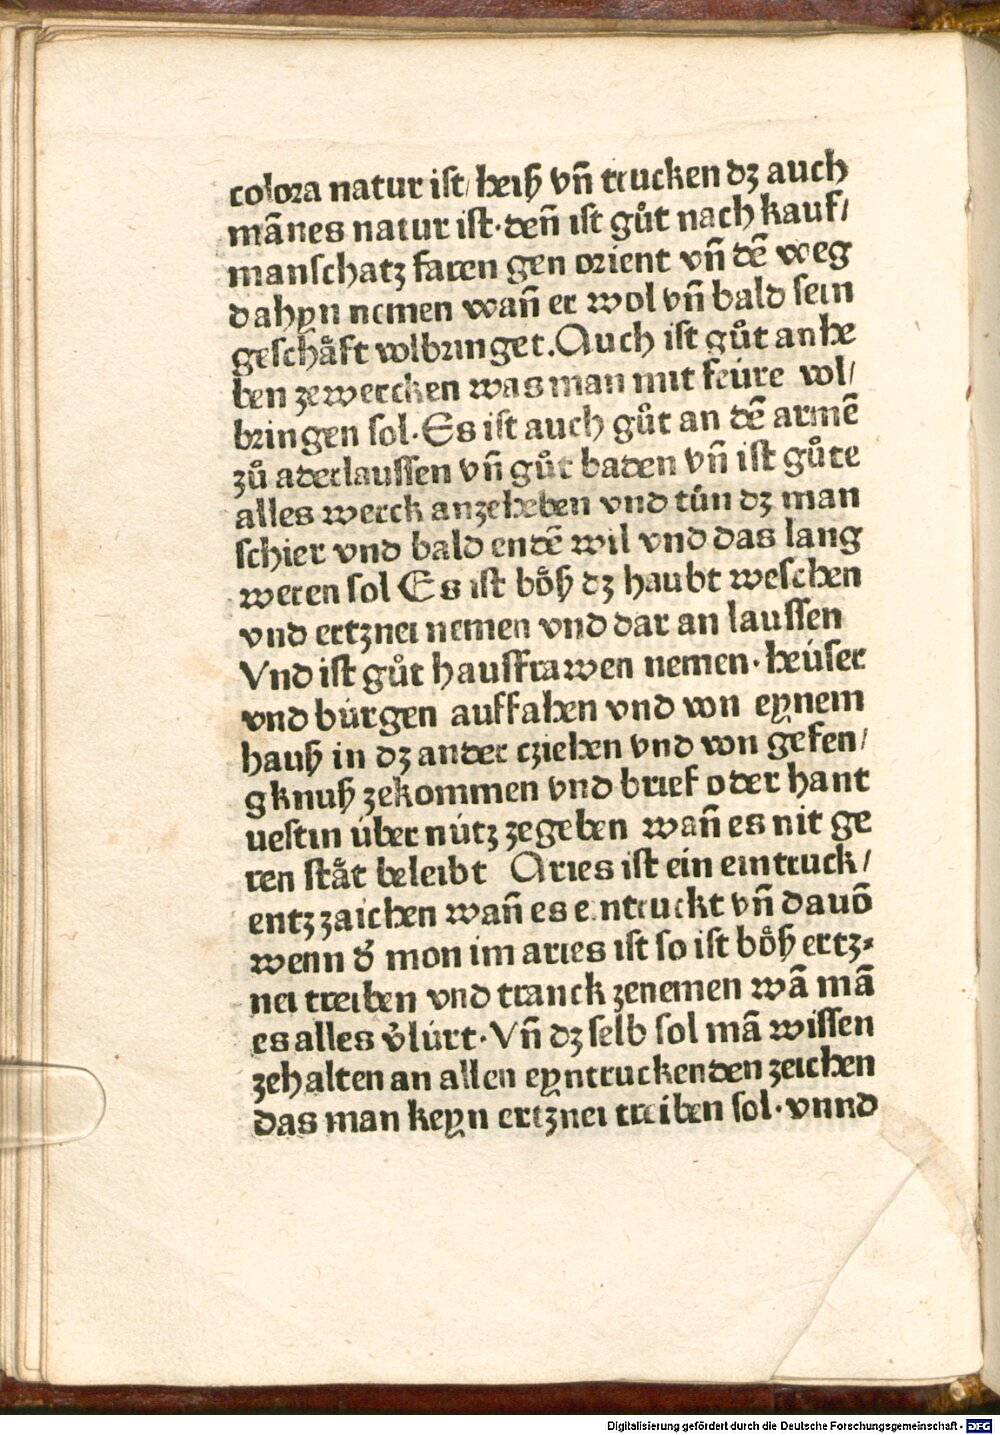 colora natur ist/ heiß vn̄ trucken dz auch
mānes natur ist·den̄ ist gůt nach kauf/
manschatz faren gen orient vn̄ dē weg
dahyn nemen wan̄ er wol vn̄ bald sein
geschåft volbringet.Auch ist gůt anhe
ben zewercken was man mit feúre vol/
bringen sol·Es ist auch gůt an dē armē
zů aderlaussen vn̄ gůt baden vn̄ ist gůte
alles werck anzeheben vnd tůn dz man
schier vnd bald endē wil vnd das lang
weren sol Es ist bo̊ß dz haubt weschen
vnd ertznei nemen vnd dar an laussen
Vnd ist gůt hausfrawen nemen·heúser
vnd búrgen auffahen vnd von eynem
hauß in dz ander cziehen vnd von gefen/
gknuß zekommen vnd brief oder hant
uestin úber nútz zegeben wan̄ es nit ge
ren ståt beleibt Aries ist ein eintruck/
entz zaichen wan̄ es eintruckt vn̄ dauō
wenn d̕ mon im aries ist so ist bo̊ß ertz⸗
nei treiben vnd tranck zenemen wā mā
es alles v̕lúrt·Vn̄ dz selb sol mā wissen
zehalten an allen eyntruckenden zeichen
das man keyn ertznei treiben sol·vnnd
Digitalisierung gefördert durch die Deutsche Forschungsgemeinschaft - DFG